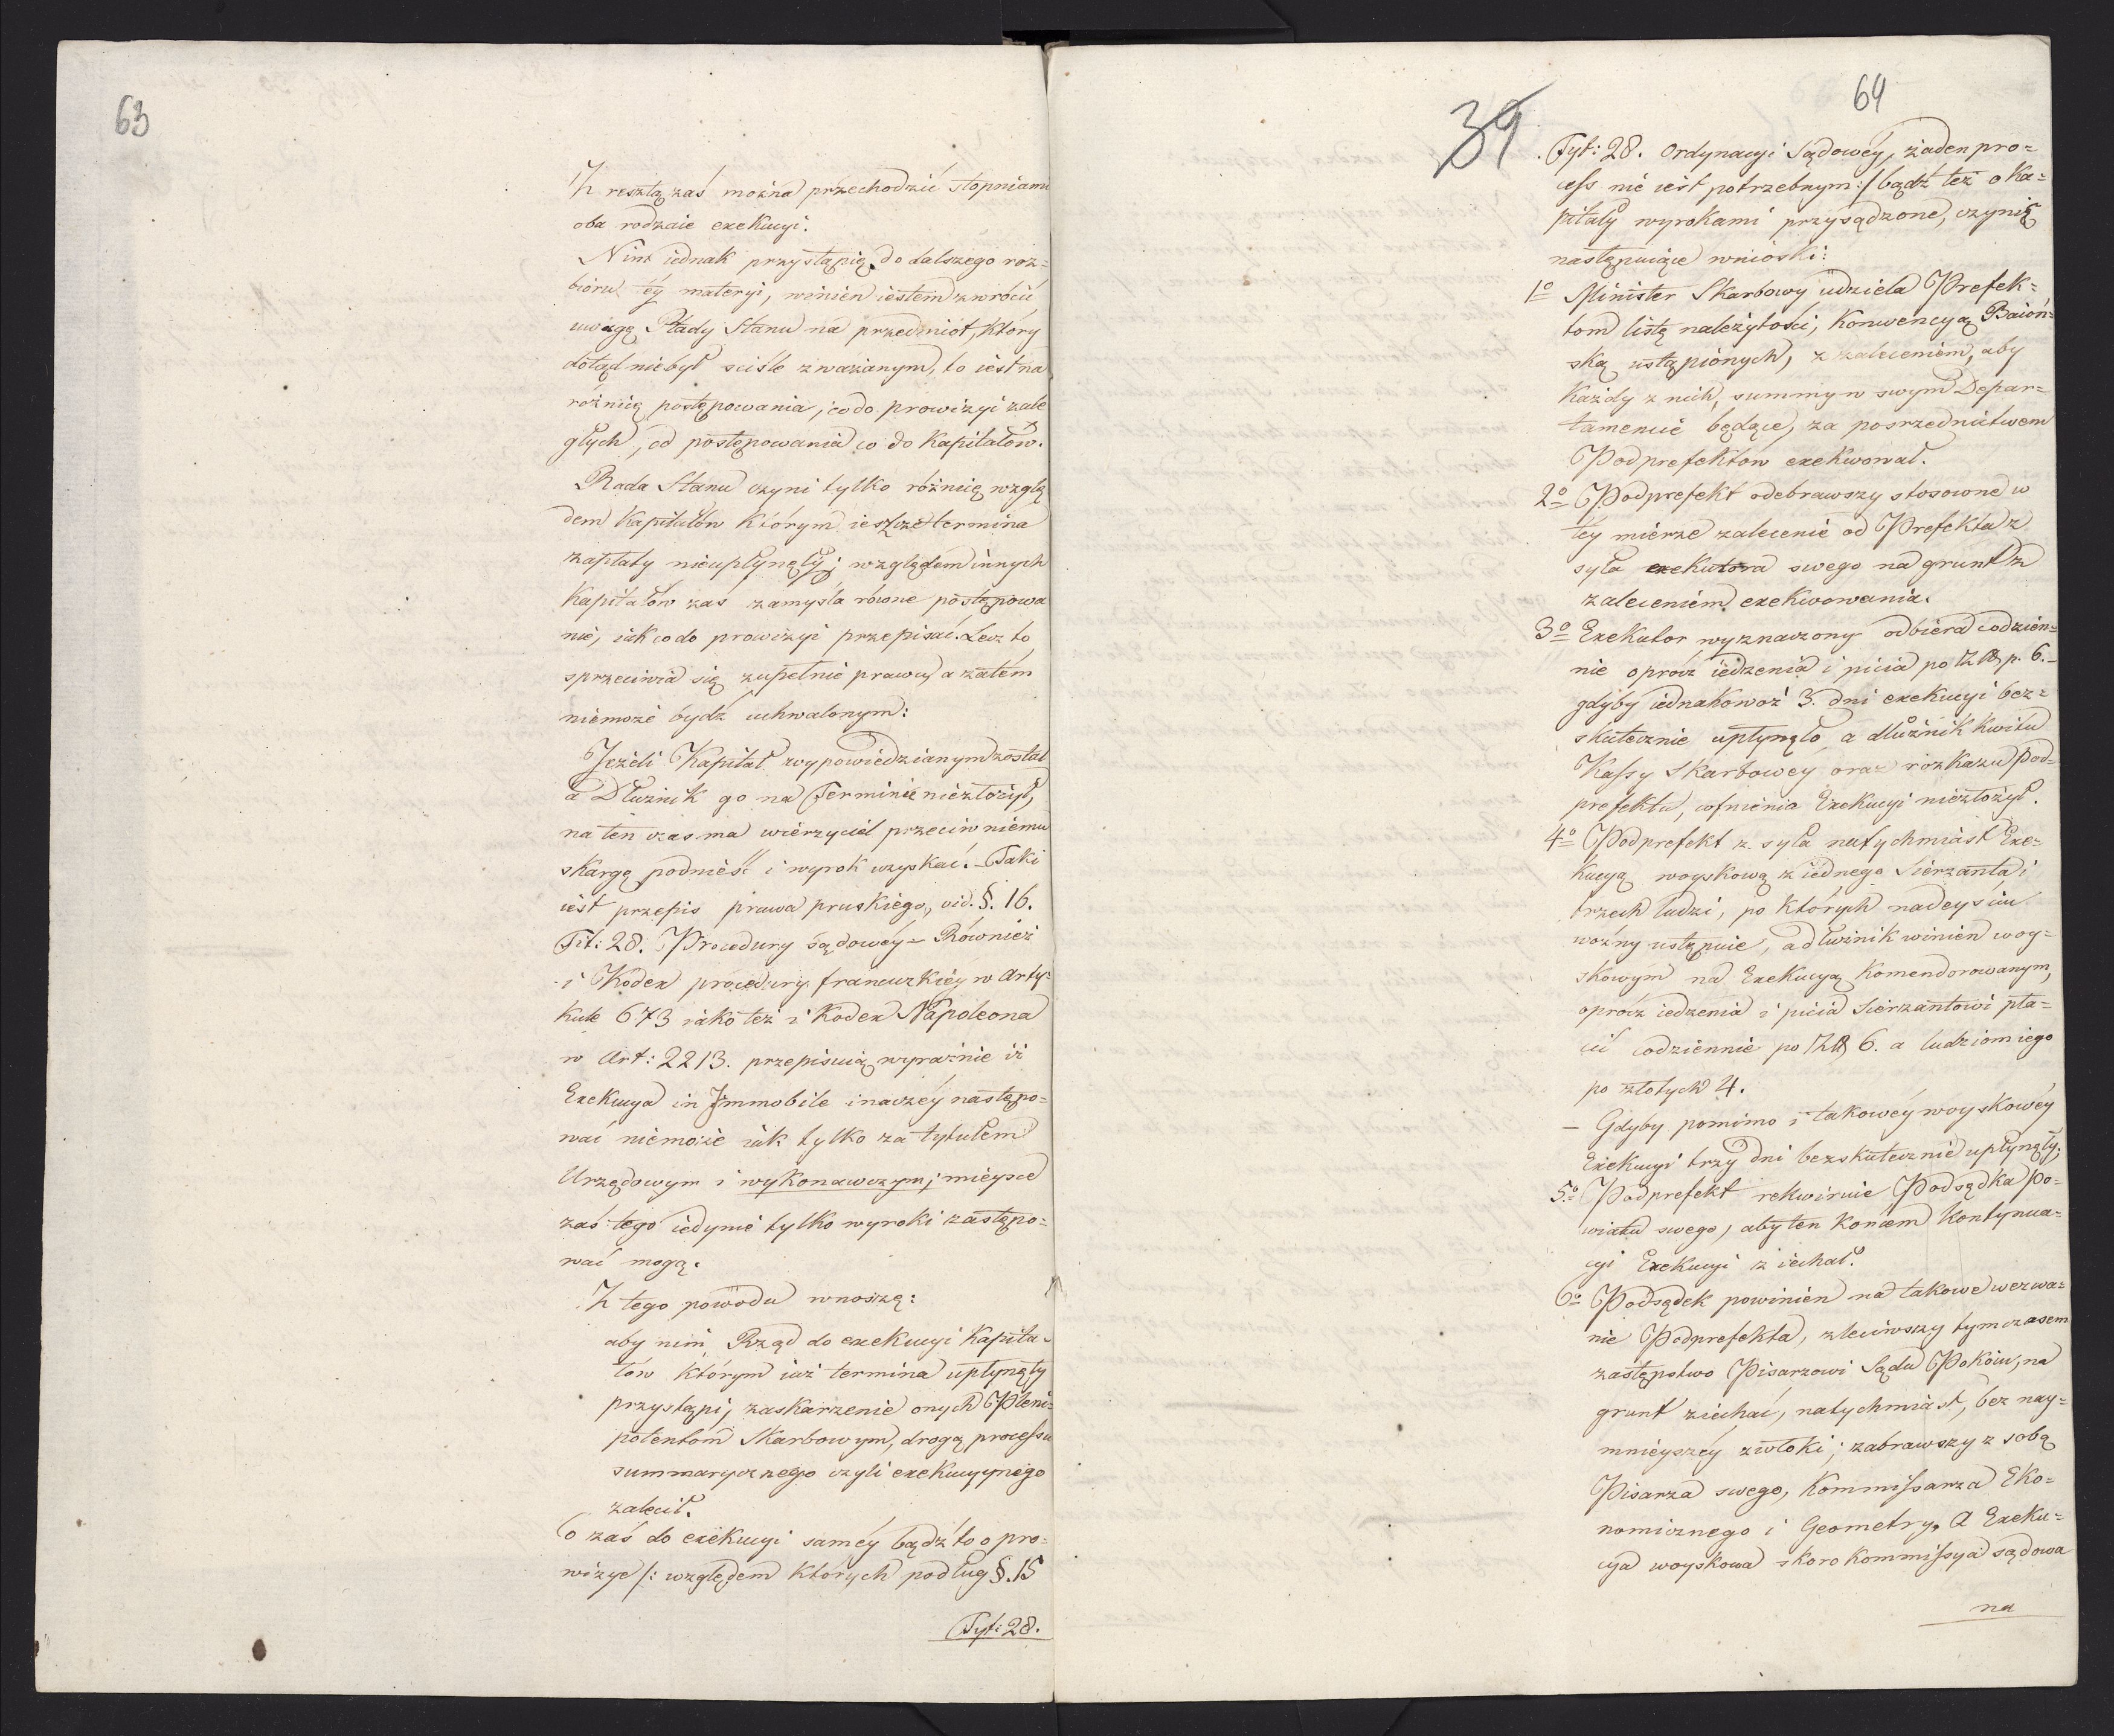 63
Z resztą zaś można przechodzić stopniami
oba rodzaie exekucyi.
Nim iednak przystąpię do dalszego roz=
bioru téy materyi, winien iestem zwrócić
uwagę Rady Stanu na przedmiot, który
dotąd niebył sciśle zważanym, to iest na
różnicę postępowania, co do prowizyi zale
głych, od postępowania co do Kapitałów.
Rada Stanu czyni tylko różnicę wzglę
dem Kapitałów którym ieszcze termina
zapłaty nieupłynęły; względem innych
Kapitałów zaś zamyśla równe postępowa
nie, iak co do prowizyi przepisać. Lecz to
sprzeciwia się zupełnie prawu, a zatém
niemoże bydź uchwalonym:
Jeżeli Kapitał wypowiedzianym został
a Dłużnik go na Terminie niezłożył,
na ten czas ma wierzyciel przeciw niemu
skargę podnieść i wyrok uzyskać. – Taki
iest przepis prawa pruskiego, vid. §. 16.
Tit: 28. Procedury sądowéy – Również
i Kodex procedury francuzkiéy w Arty=
kule 673 iako też i Kodex Napoleona
w Art: 2213. przepisuią wyraźnie iż
Exekucya in Immobile inaczéy następo=
wać niemoże iak tylko za tytułem
Urzędowym i wykonawczym; mieysce
zaś tego iedynie tylko wyroki zastępo=
wać mogą.
Z tego powodu wnoszę:
aby nim Rząd do exekucyi Kapita=
łów którym iuż termina upłynęły
przystąpi, zaskarzenie onych Pleni=
potentom Skarbowym, drogą processu
summarycznego czyli exekucyynego
zalecił.
Co zaś do exekucyi saméy bądź to o pro=
wizye /: względem których podług §. 15
Tyt: 28.
39
64
Tyt: 28. Ordynacyi Sądowéy, żaden pro=
cess nie iest potrzebnym :/ bądź też o Ka=
pitały wyrokami przysądzone, czynię
następuiące wnioski:
1o Minister Skarbowy udziela Prefek=
tom listę należytości, Konwencyą Baioń=
ską ustąpionych, z zaleceniem, aby
Każdy z nich, summy w swym Depar=
tamencie będące, za posrzednictwem
Podprefektów exekwował.
2o Podprefekt odebrawszy stosowne w
téy mierze zalecenie od Prefekta z
syła exekutora swego na grunt z
zaleceniem exekwowania.
3o Exekutor wyznaczony odbiera codzien=
nie oprócz iedzenia i picia po Złp. 6. –
gdyby iednakowoż 3. dni exekucyi bez=
skutecznie upłynęło a dłużnik kwitu
Kassy Skarbowey oraz rozkazu Pod=
prefekta, cofnienia Exekucyi niezłożył.
4o Podprefekt z syła natychmiast Exe=
kucyą woyskową z iednego Sierzanta i
trzech ludzi, po których nadeysciu
woźny ustępuie, a dłużnik winien woy=
skowym na Exekucyą Komenderowanym,
oprócz iedzenia i picia Sierzantowi pła=
cić codziennie po Zł 6. a ludziom iego
po złotych 4.
– Gdyby pomimo i takowéy woyskowéy
Exekucyi trzy dni bezskutecznie upłynęły,
5o Podprefekt rekwiruie Podsędka Po=
wiatu swego, aby ten końcem Kontynua=
cyi Exekucyi z iechał.
6o Podsędek powinien na takowe wezwa=
nie Podprefekta, zleciwszy tymczasem
zastępstwo Pisarzowi Sądu Pokoiu, na
grunt ziechać, natychmiast, bez nay=
mnieyszéy zwłoki; zabrawszy z sobą
Pisarza swego, Kommissarza Eko=
nomicznego i Geometry. A Exeku=
cya woyskowa skoro Kommissya sądowa
na